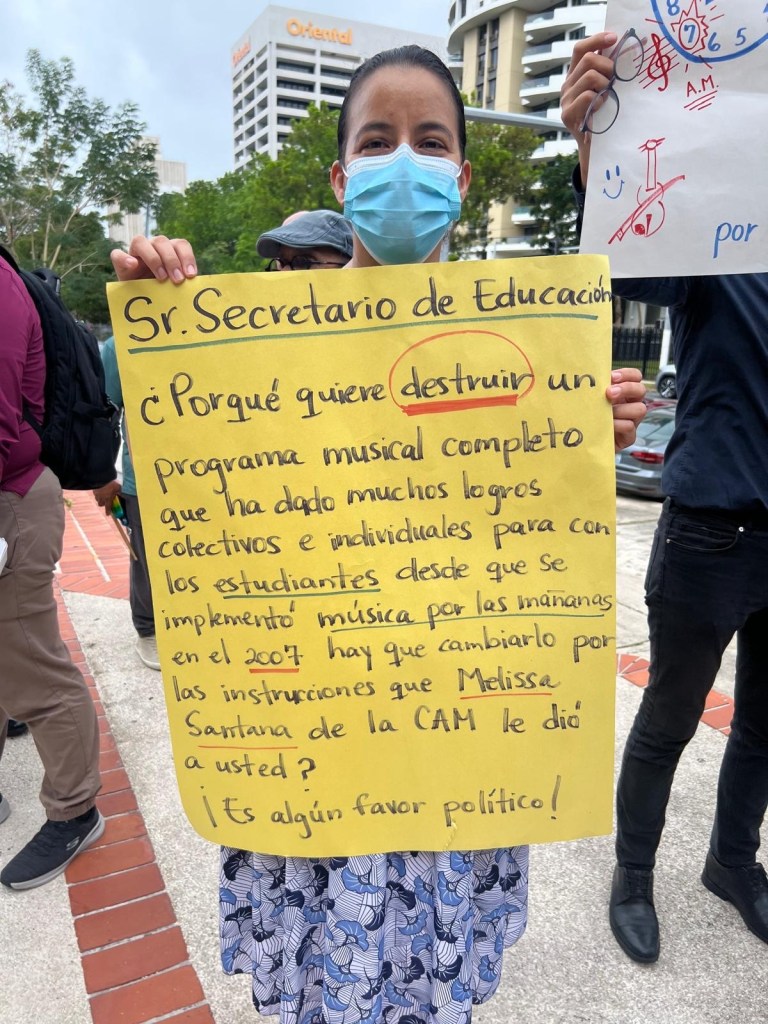 Oriental
7 6 5
A.M
por
Sr. Secretario de Educación
¿Porqué quiere destruir un
programa musical completo
que ha dado muchos logros
colectivos e individuales para con
los estudiantes desde que se
implementó música por las mañanas
en el 2007 hay que cambiarlo por
las instrucciones que Melissa
Santana de la CAM le dió
a usted?
¡Es algún favor político!